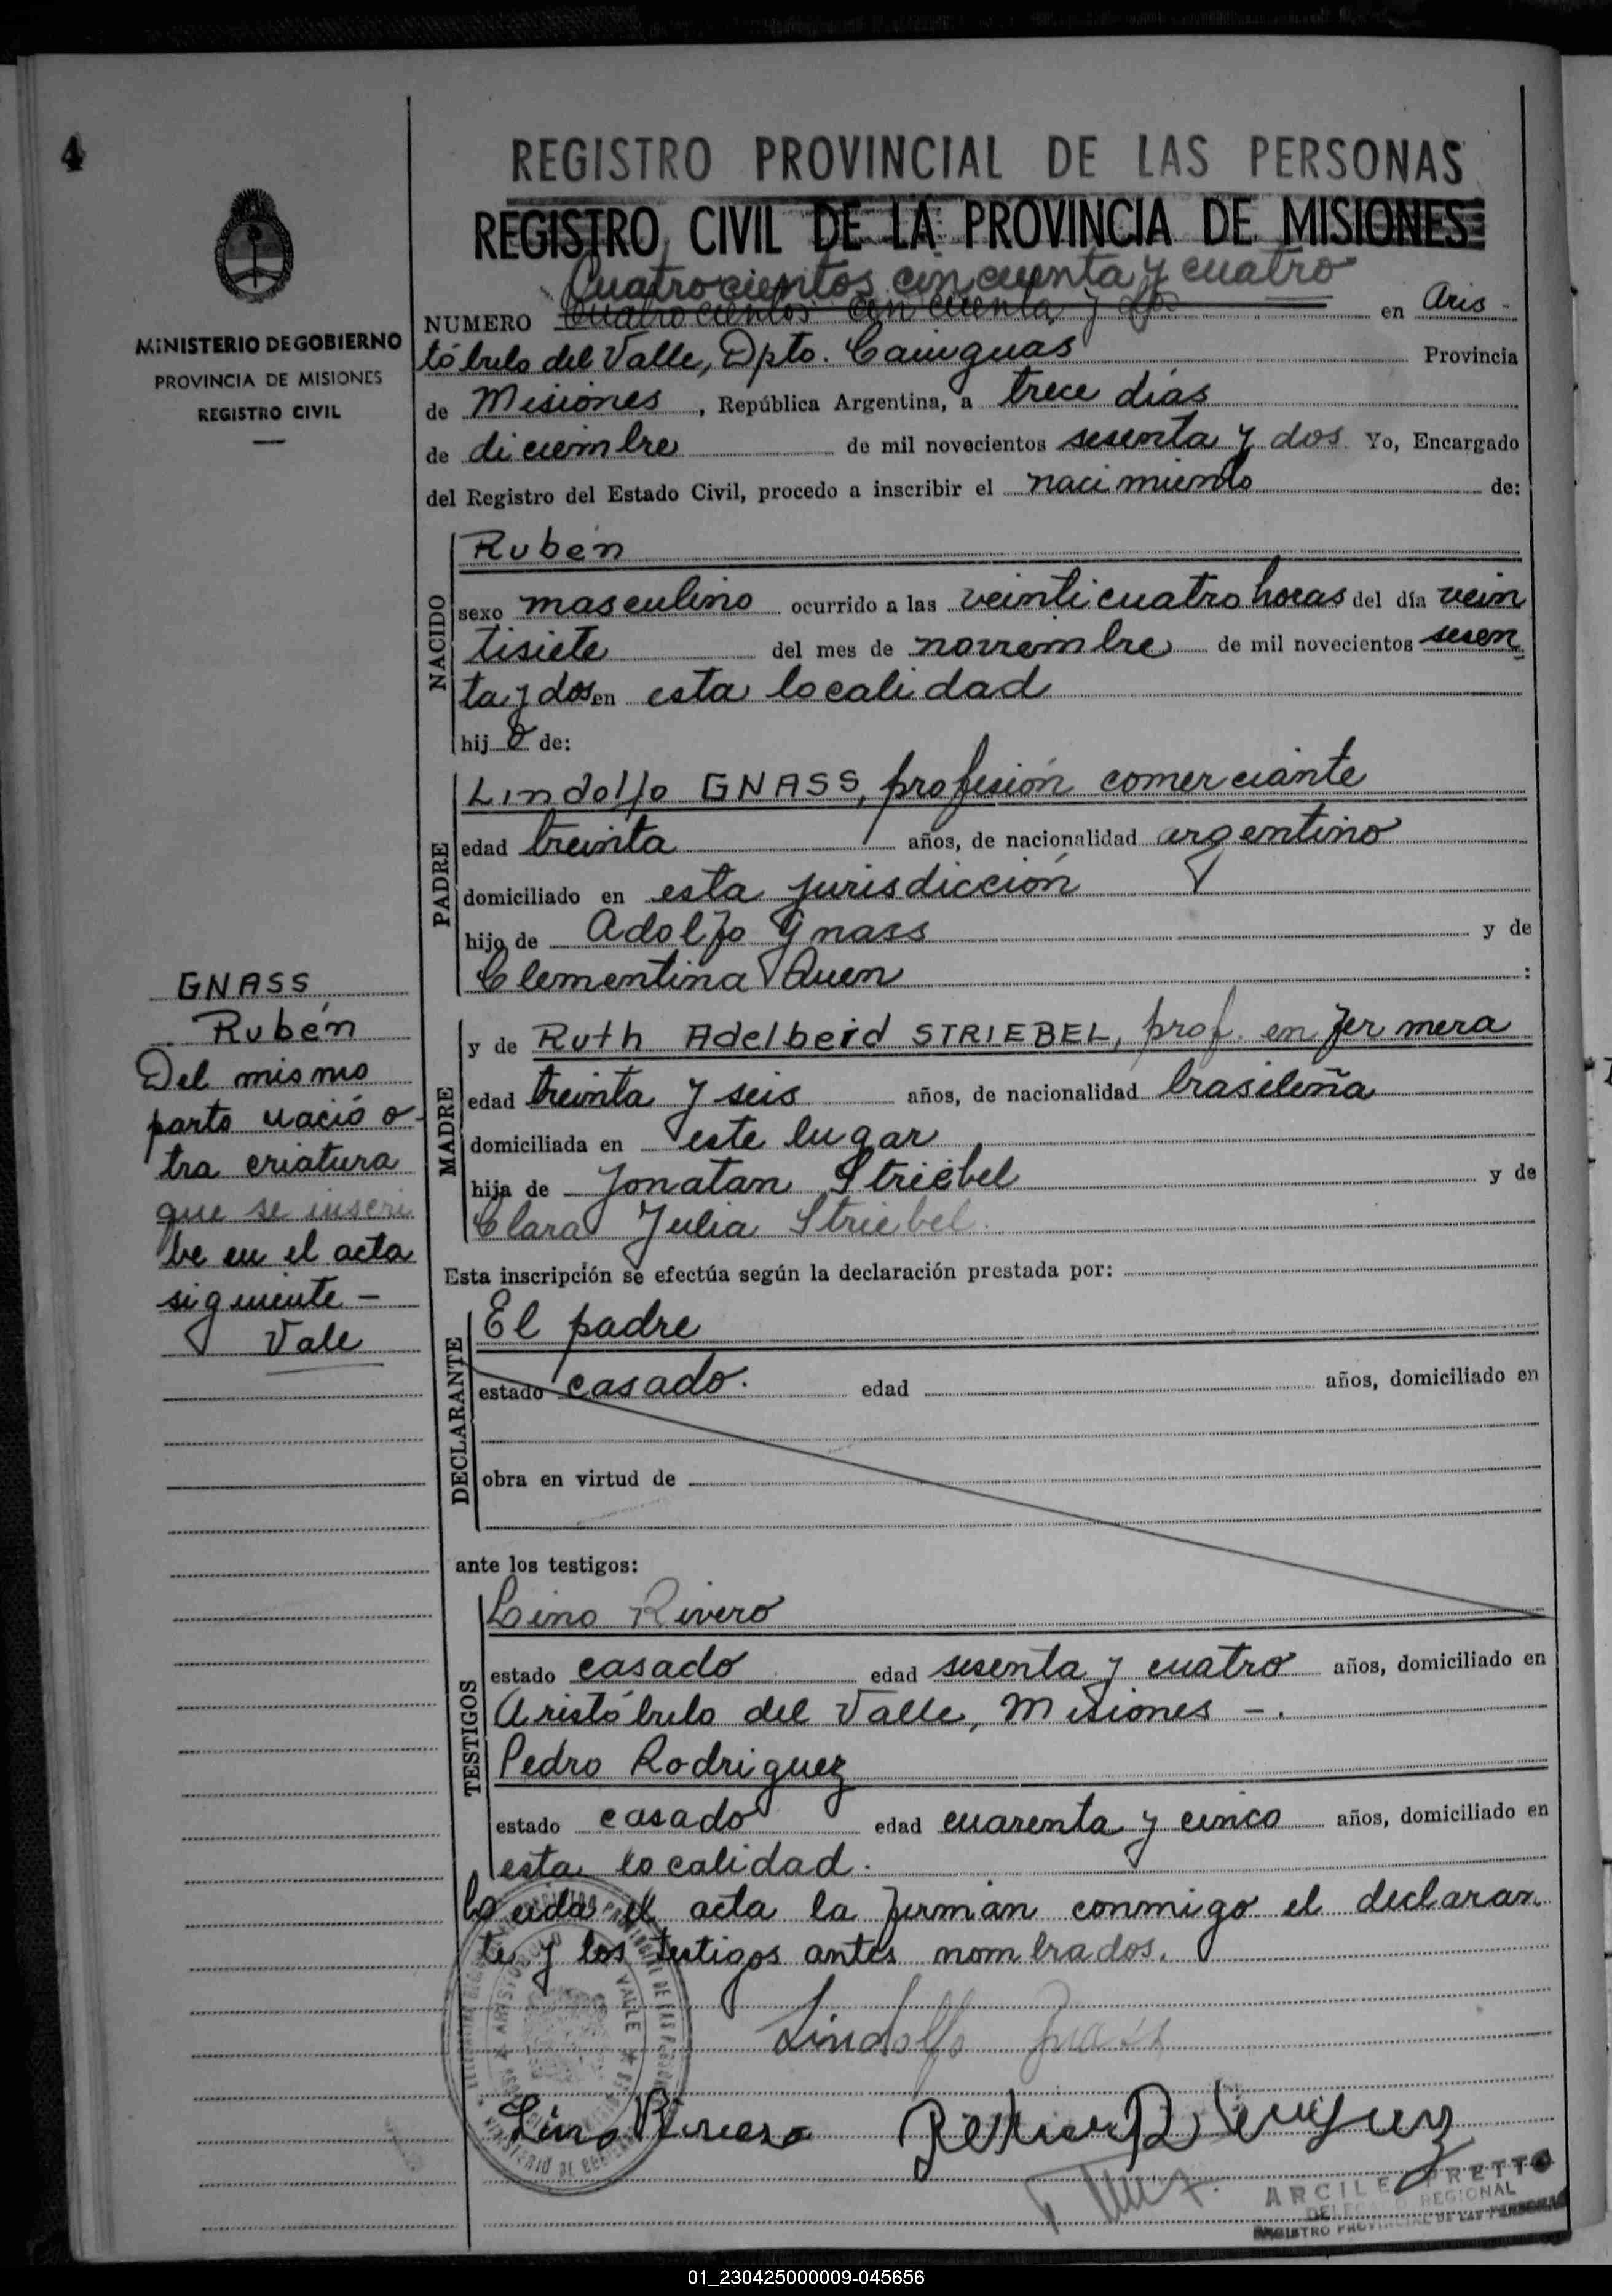 4
REGISTRO PROVINCIAL DE LAS PERSONAS
REGISTRO CIVIL DE LA PROVINCIA DE MISIONES
Cuatrocientos cincuenta y cuatro
NUMERO Cuatrocientos cincuenta y en Aris-
tóbulo del Valle, Dpto. Cainguas Provincia
de Misiones, República Argentina, a trece días
de diciembre de mil novecientos sesenta y dos Yo, Encargado
del Registro del Estado Civil, procedo a inscribir el nacimiento de:
MINISTERIO DE GOBIERNO
PROVINCIA DE MISIONES
REGISTRO CIVIL
NACIDO
Rubén
sexo masculino ocurrido a las veinticuatro horas del día vein
tisiete del mes de noviembre de mil novecientos sesen
ta y dos en esta localidad
hijo de:
PADRE
Lindolfo GNASS, profesión comerciante
edad treinta años, de nacionalidad argentino
domiciliado en esta jurisdicción
hijo de Adolfo Gnass y de
Clementina Quen :
GNASS
Rubén
Del mismo
parto nació o-
tra criatura
que se inscri
be en el acta
siguiente -
Vale
MADRE
y de Ruth Adelbeid STRIEBEL, prof. enfermera
edad treinta y seis años, de nacionalidad brasileña
domiciliada en este lugar
hija de Jonatan Striebel y de
Clara Julia Striebel.
Esta inscripción se efectúa según la declaración prestada por:
DECLARANTE
El padre
estado casado. edad años, domiciliado en
obra en virtud de
ante los testigos:
TESTIGOS
Lino Rivero
estado casado edad sesenta y cuatro años, domiciliado en
Aristóbulo del Valle, Misiones -.
Pedro Rodriguez
estado casado edad cuarenta y cinco años, domiciliado en
esta localidad.
Leida el acta la firman conmigo el declaran
te y los testigos antes nombrados.
Lindolfo Gnass
Lino Rivero
REGIONAL
REGISTRO PROVINCIAL DE LAS PERSONAS
01_230425000009-045656